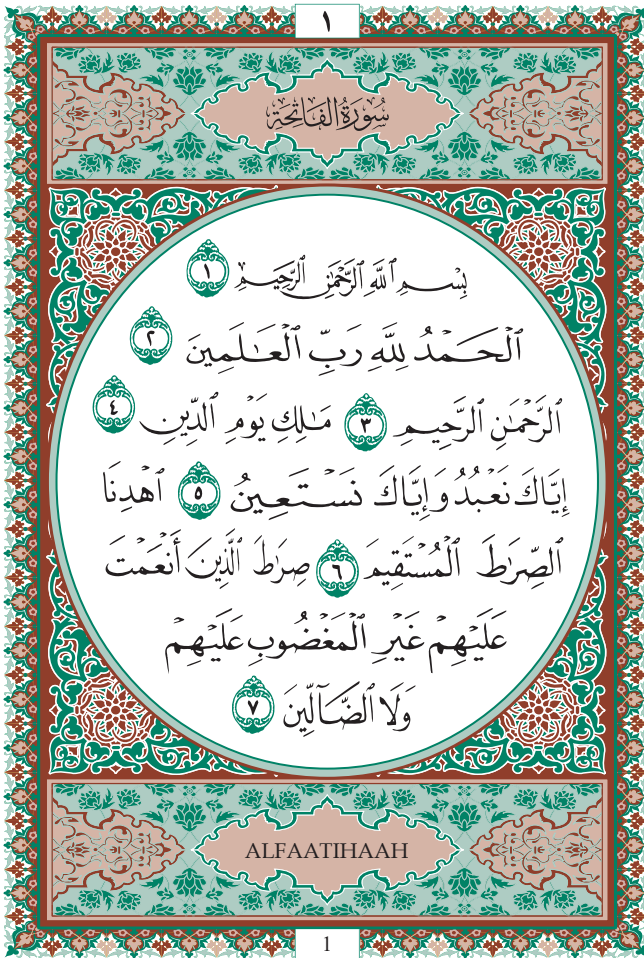 ١
سُورَةُ الفَاتِحَة
بِسْمِ ٱللَّهِ ٱلرَّحْمَٰنِ ٱلرَّحِيمِ ١
ٱلْحَمْدُ لِلَّهِ رَبِّ ٱلْعَٰلَمِينَ ٢
ٱلرَّحْمَٰنِ ٱلرَّحِيمِ ٣ مَٰلِكِ يَوْمِ ٱلدِّينِ ٤
إِيَّاكَ نَعْبُدُ وَإِيَّاكَ نَسْتَعِينُ ٥ ٱهْدِنَا
ٱلصِّرَٰطَ ٱلْمُسْتَقِيمَ ٦ صِرَٰطَ ٱلَّذِينَ أَنْعَمْتَ
عَلَيْهِمْ غَيْرِ ٱلْمَغْضُوبِ عَلَيْهِمْ
وَلَا ٱلضَّآلِّينَ ٧
ALFAATIHAAH
1